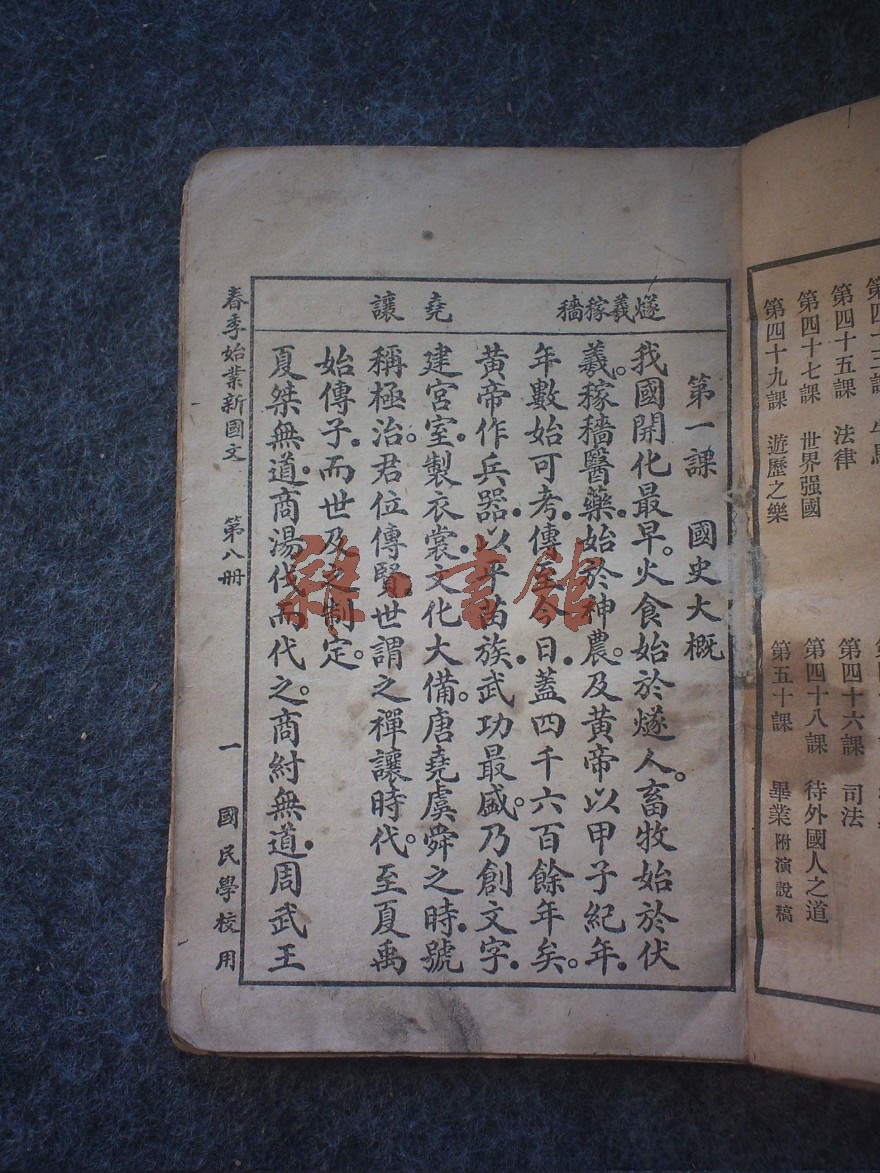 第四十五課 法律
第四十六課 司法
第四十七課 世界强國
第四十八課 待外國人之道
第四十九課 遊歷之樂
第五十課 畢業附演說稿
燧羲稼穡
堯讓
第一課 國史大概
我國開化最早。火食始於燧人。畜牧始於伏
羲。稼穡醫藥。始於神農。及黃帝以甲子紀年。
年數始可考。傳至今日。蓋四千六百餘年矣。
黃帝作兵器。以平苗族。武功最盛。乃創文字。
建宮室。製衣裳。文化大備。唐堯虞舜之時。號
稱極治。君位傳賢。世謂之禪讓時代。至夏禹
始傳子。而世及之制定。
夏桀無道。商湯伐而代之。商紂無道。周武王
春季始業新國文 第八冊 一 國民學校用
雜·書館